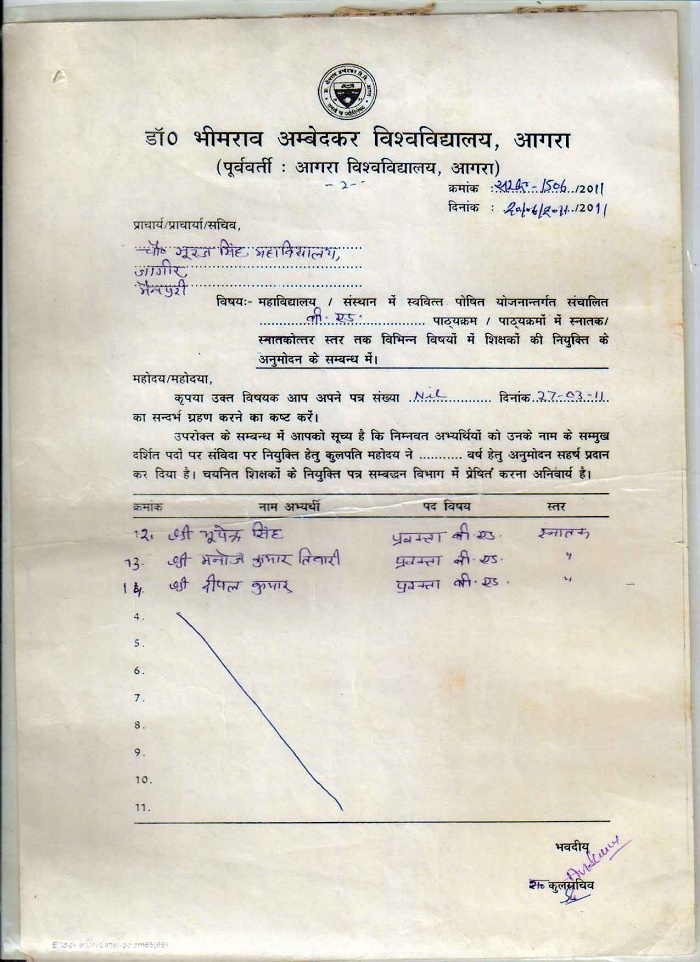 डॉ० भीमराव अम्बेदकर विश्वविद्यालय, आगरा
(पूर्ववर्ती : आगरा विश्वविद्यालय, आगरा)
-2-
क्रमांक : -1506/2011
दिनांक : 20/06/2011/2011
प्राचार्य/प्राचार्या/सचिव,
चौ० सूरज सिंह महाविद्यालय,
जागीर,
मैनपुरी
विषयः- महाविद्यालय / संस्थान में स्ववित्त पोषित योजनान्तर्गत संचालित
बी.एड. पाठ्यक्रम / पाठ्यक्रमों में स्नातक/
स्नातकोत्तर स्तर तक विभिन्न विषयों में शिक्षकों की नियुक्ति के
अनुमोदन के सम्बन्ध में।
महोदय/महोदया,
कृपया उक्त विषयक आप अपने पत्र संख्या Nil दिनांक 27-03-11
का सन्दर्भ ग्रहण करने का कष्ट करें।
उपरोक्त के सम्बन्ध में आपको सूच्य है कि निम्नवत अभ्यर्थियों को उनके नाम के सम्मुख
दर्शित पदों पर संविदा पर नियुक्ति हेतु कुलपति महोदय ने ........... वर्ष हेतु अनुमोदन सहर्ष प्रदान
कर दिया है। चयनित शिक्षकों के नियुक्ति पत्र सम्बद्धन विभाग में प्रेषित करना अनिवार्य है।
क्रमांक नाम अभ्यर्थी पद विषय स्तर
12. श्री भूपेन्द्र सिंह प्रवक्ता बी.एड. स्नातक
13. श्री मनोज कुमार तिवारी प्रवक्ता बी.एड. "
14. श्री दीपल कुमार प्रवक्ता बी.एड. "
4.
5.
6.
7.
8.
9.
10.
11.
भवदीय
स० कुलसचिव